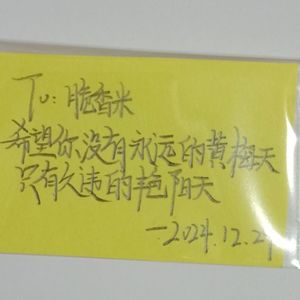 To: 脆香米
希望你没有永远的黄梅天
只有久违的艳阳天
—2024.12.29